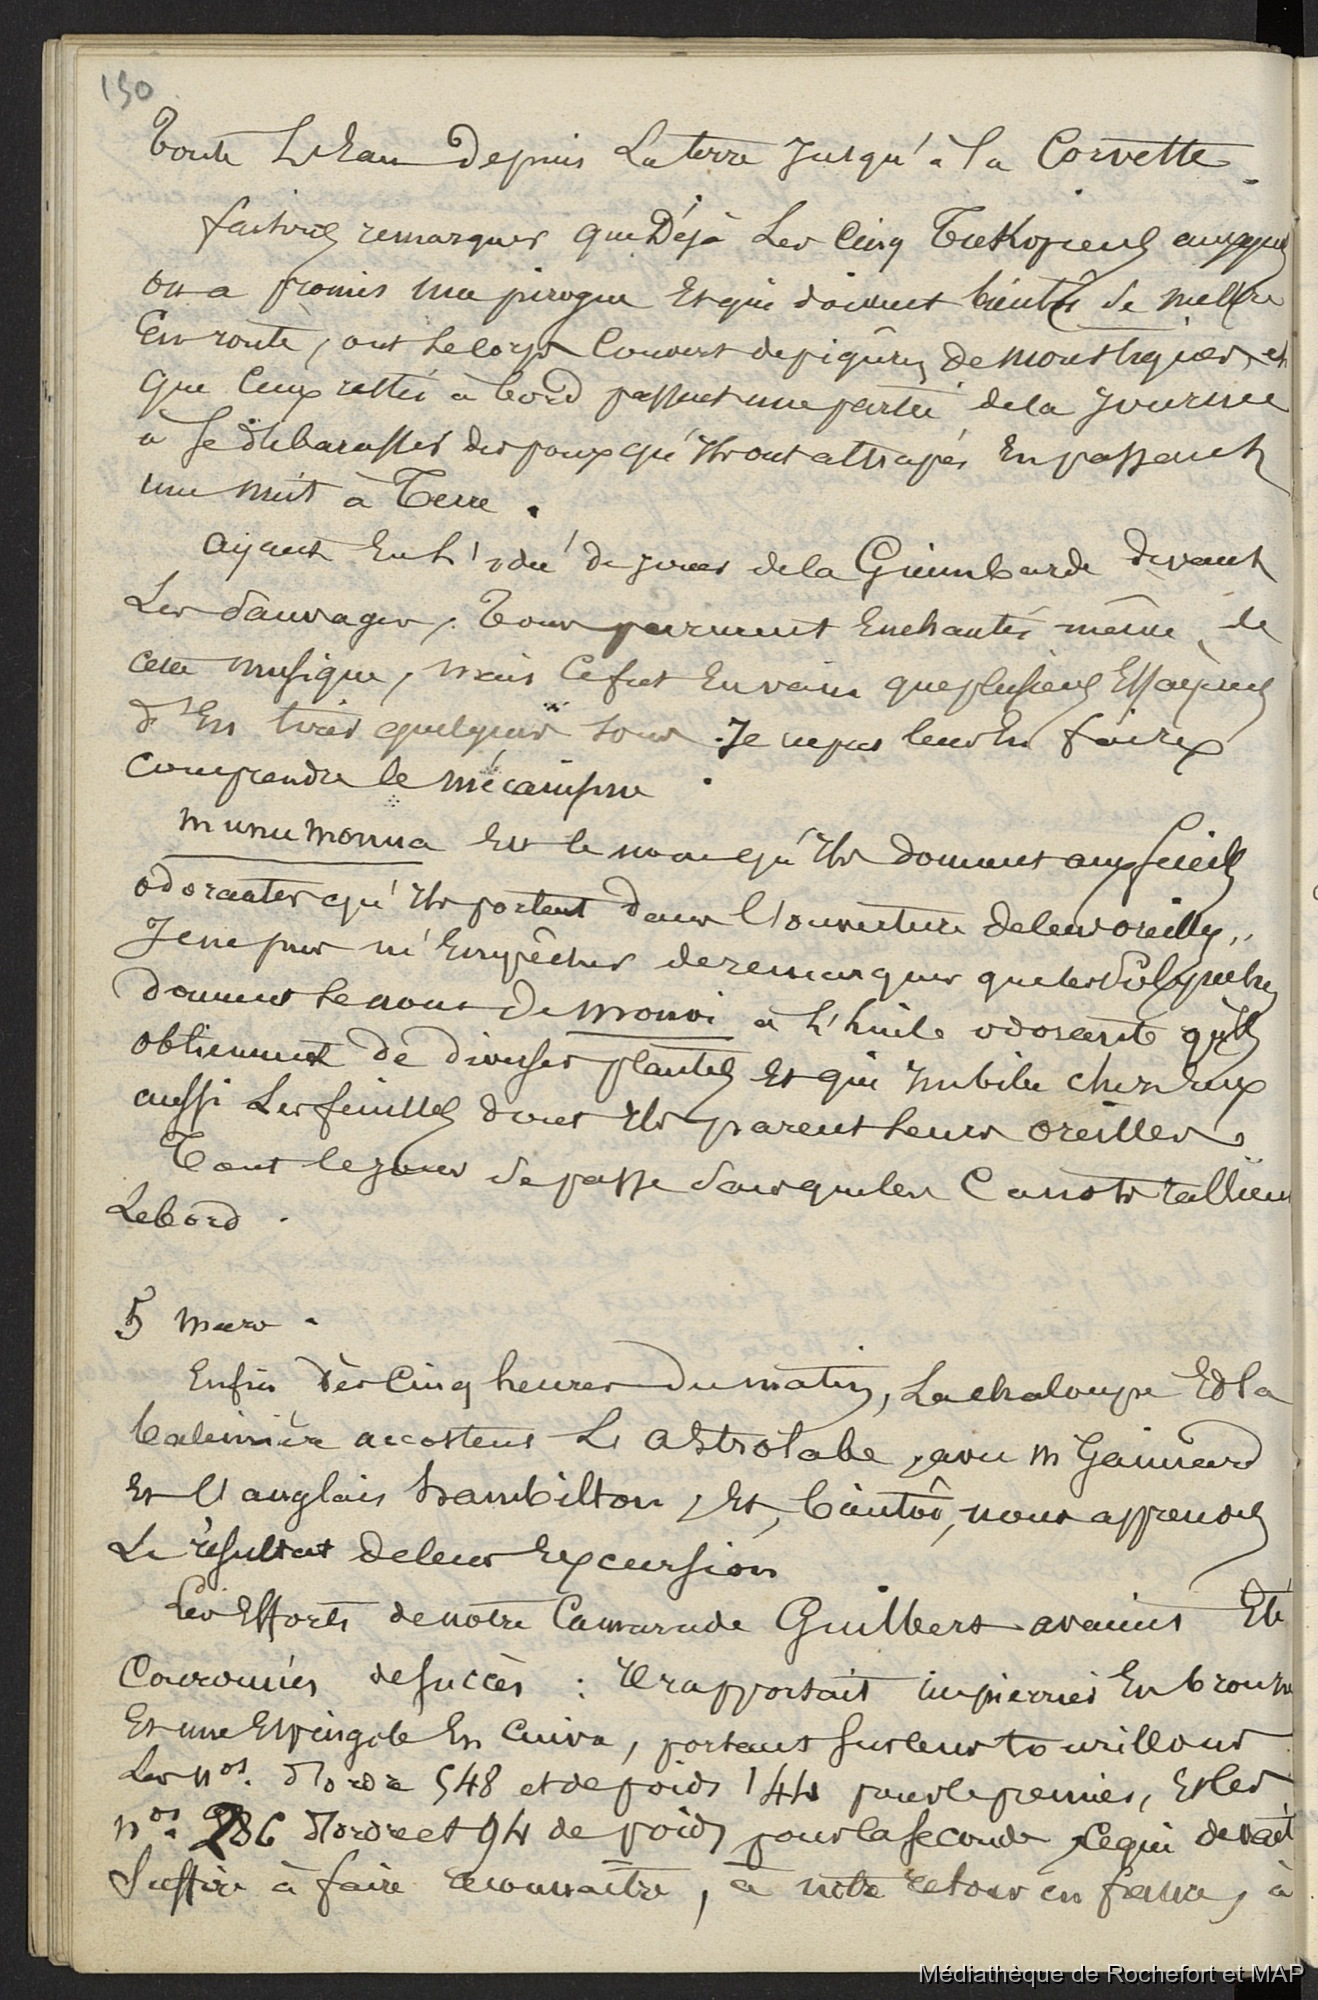 150
Toute L'Eau depuis La terre Jusqu'à la Corvette.
faitorez remarquer que Déjà Les Cinq Tukopiens auxquels
on a promis une pirogue Et qui doivent bientôt se mettre
En route, ont Le corps Couvert de piqûres De moustiques, et
que Ceux restés à bord passent une partie de la Journée
à se débarasser des poux qu'Ils ont attrapés En passant
une nuit à Terre.
ayant Eu L'idée de jouer de la Guimbarde devant
Les Sauvages, Tous parurent Enchantés même de
cette musique, mais Ce fut En vain que plusieurs Essayèrent
d'En tirer quelques sons. Je ne pus leur En faire
comprendre le mécanisme.
munumonna Est le nom qu'Ils donnent aux fleurs
odorantes qu'Ils portent dans l'ouverture de leurs oreilles,
Je ne pus m'Empêcher de remarquer que les
donnent Le nom De monoi à L'huile odorante qu'Ils
obtiennent de diverses plantes Et qui Imbibe chez Eux
aussi Les feuilles dont Ils parent Leurs oreilles.
Tout le jour se passe sans que les Canots rallient
Le bord.
5 mars.
Enfin Dès Cinq heures Du matin, La chaloupe Et la
baleinière accostent L'Astrolabe, avec M Gaimard
Et l'anglais hambilton, Et, bientôt, nous apprenons
Le résultat de leur Excursion
Les Efforts de notre Camarade Guilbert avaient Eté
Couronnés de succès : Il rapportait un pierrier En bronze
Et une Espingole En Cuivre, portant sur leurs tourillons
Les nos. d'ordre 548 et de poids 144 pour le premier, Et les
nos. 286 d'ordre et 94 de poids pour la seconde, Ce qui devait
Suffire à faire reconnaître, à notre retour en france, à
Médiathèque de Rochefort et MAP